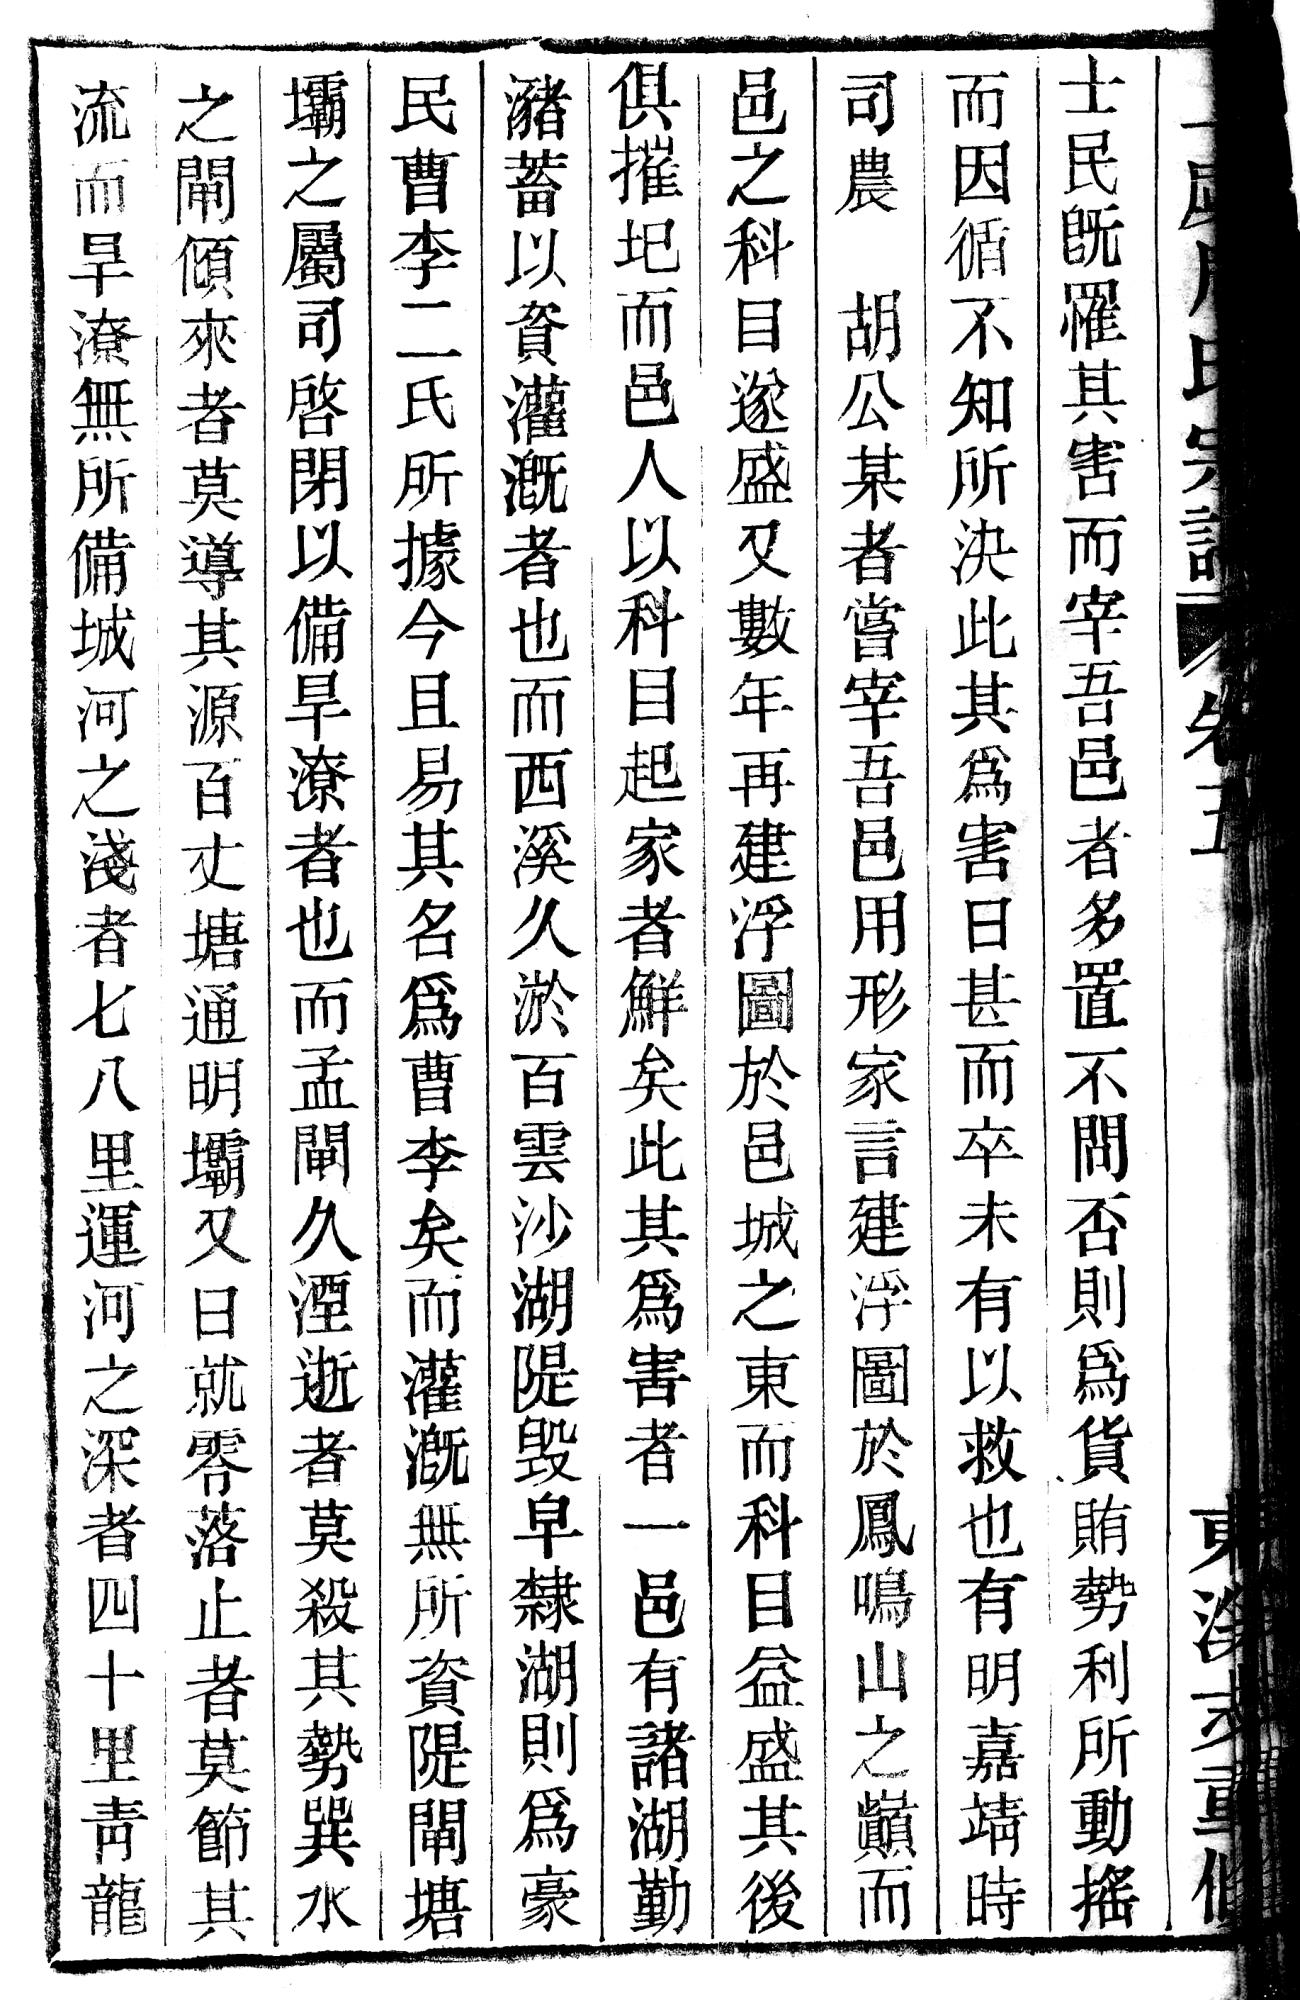 氏宗譜 卷五 東溪 重修
士民旣罹其害而宰吾邑者多置不問否則爲貨賄勢利所動搖
而因循不知所決此其爲害日甚而卒未有以救也有明嘉靖時
司農 胡公某者嘗宰吾邑用形家言建浮圖於鳳鳴山之巔而
邑之科目遂盛又數年再建浮圖於邑城之東而科目益盛其後
俱摧圯而邑人以科目起家者鮮矣此其爲害者一邑有諸湖勤
瀦蓄以資灌漑者也而西溪久淤百雲沙湖隄毀皁隸湖則爲豪
民曹李二氏所據今且易其名爲曹李矣而灌漑無所資隄閘塘
壩之屬司啓閉以備旱潦者也而孟閘久湮逝者莫殺其勢巽水
之閘傾來者莫導其源百丈塘通明壩又日就零落止者莫節其
流而旱潦無所備城河之淺者七八里運河之深者四十里靑龍